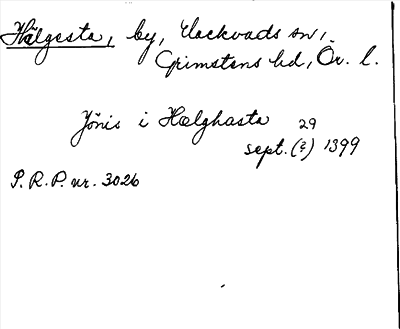 Hälgesta, by, Vackvads sn,
Grimstens hd, Ör. l.
Jönis i Hælghasta 29
sept. (?) 1399
S.R.P. nr. 3026